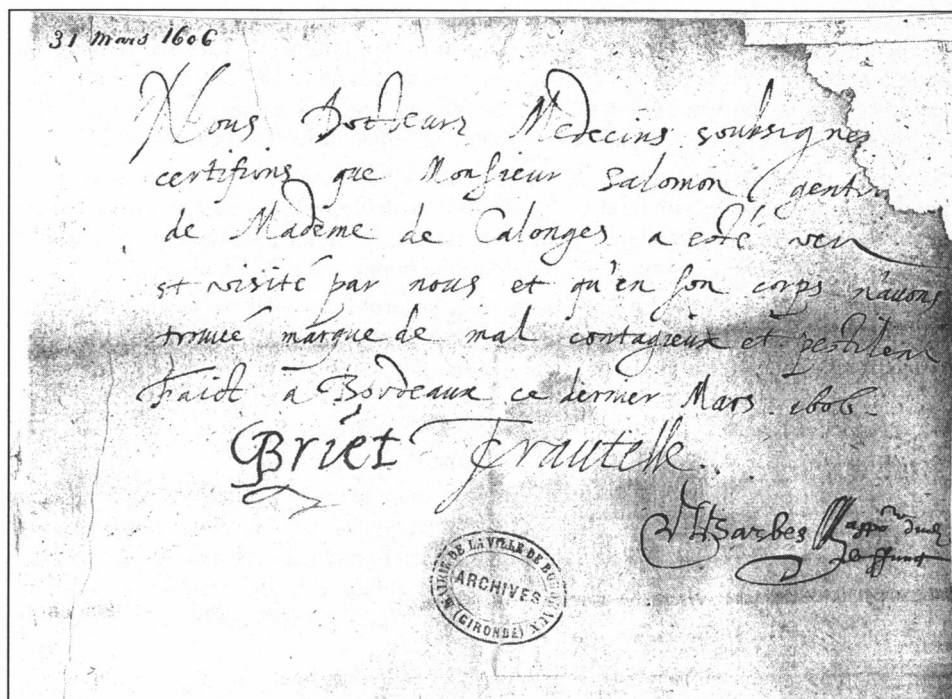 31 Mars 1606
Nous Docteurs Medecins soubsignes
certifions que Monsieur Salomon gent
de Madame de Calonges a esté veu
et visité par nous et qu'en son corps n'avons
trouvé marque de mal contagieux et pestilent
Faict à Bordeaux ce dernier Mars 1606
Briet Trautelle
Barbes
MAIRIE DE LA VILLE DE BORDEAUX
ARCHIVES
(GIRONDE)